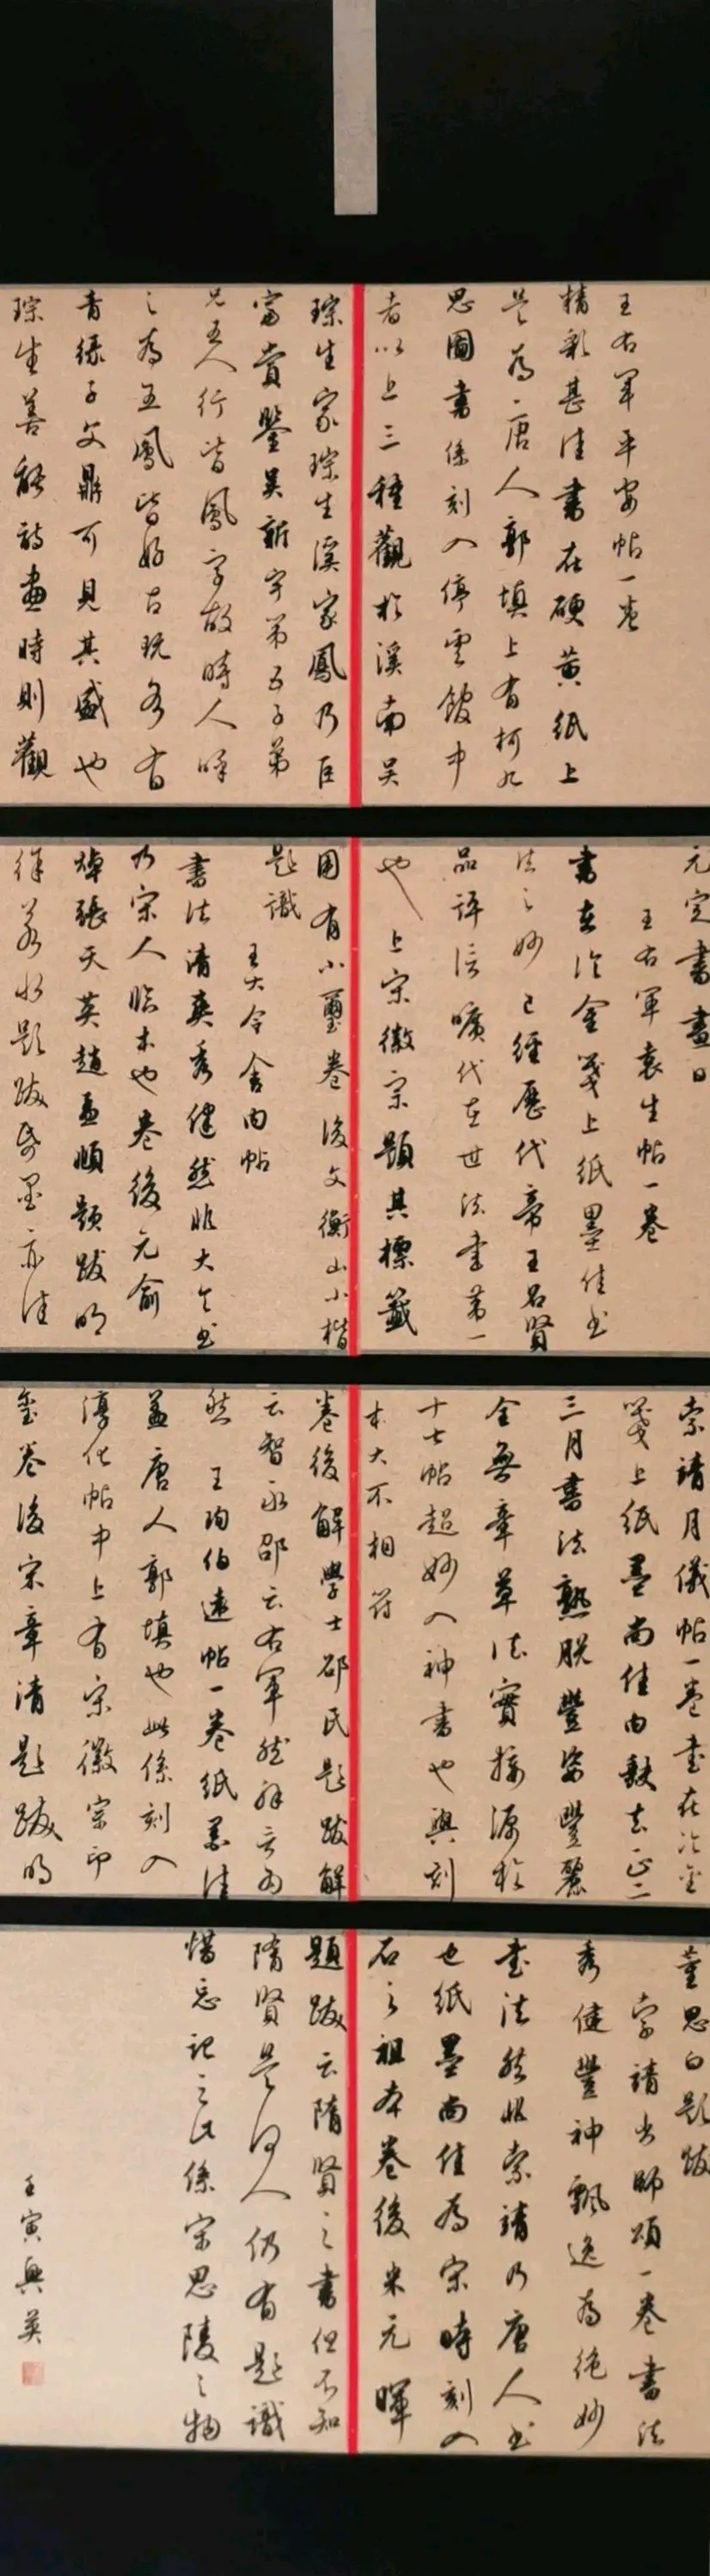 王右軍平安帖一卷
精彩甚佳書在硬黃紙上
是為唐人郭填上有柯九
思圖書係刻入停雲館中
者以上三種觀於溪南吴
琮生家琮生溪家鳳乃巨
富賞鑒吴新宇弟五子弟
兄五人行皆鳳字故時人呼
之為五鳳皆好古玩各有
青緑子父鼎可見其盛也
琮生善能詩畫時則觀
元定書畫日
王右軍袁生帖一卷
書在冷金箋上紙墨佳書
法之妙已經歷代帝王名賢
品評信曠代在世法書第一
也上宋徽宗題其標籤
周有小璽卷後文衡山小楷
題識
王大令舍内帖
書法清爽秀健然非大令書
乃宋人臨本也卷後元俞
焯張天英趙孟頫題跋明
徐若水題跋紙墨亦佳
索靖月儀帖一卷書在冷金
箋上紙墨尚佳内缺去正二
三月書法熟脱豐姿豐麗
全無章草法實接源於
十七帖超妙入神書也與刻
本大不相符
卷後解學士邵氏題跋解
云智永邵云右軍然解言为
然 王珣伯遠帖一卷紙墨佳
蓋唐人郭填也此係刻入
淳化帖中上有宋徽宗印
璽卷後宋章清題跋明
董思白題跋
索靖出師頌一卷書法
秀健豐神飄逸為絶妙
書法然非索靖乃唐人書
也紙墨尚佳為宋時刻入
石之祖本卷後米元暉
題跋云隋賢之書但不知
隋賢是何人仍有題識
惜忘記之此係宋思陵之物
壬寅與英